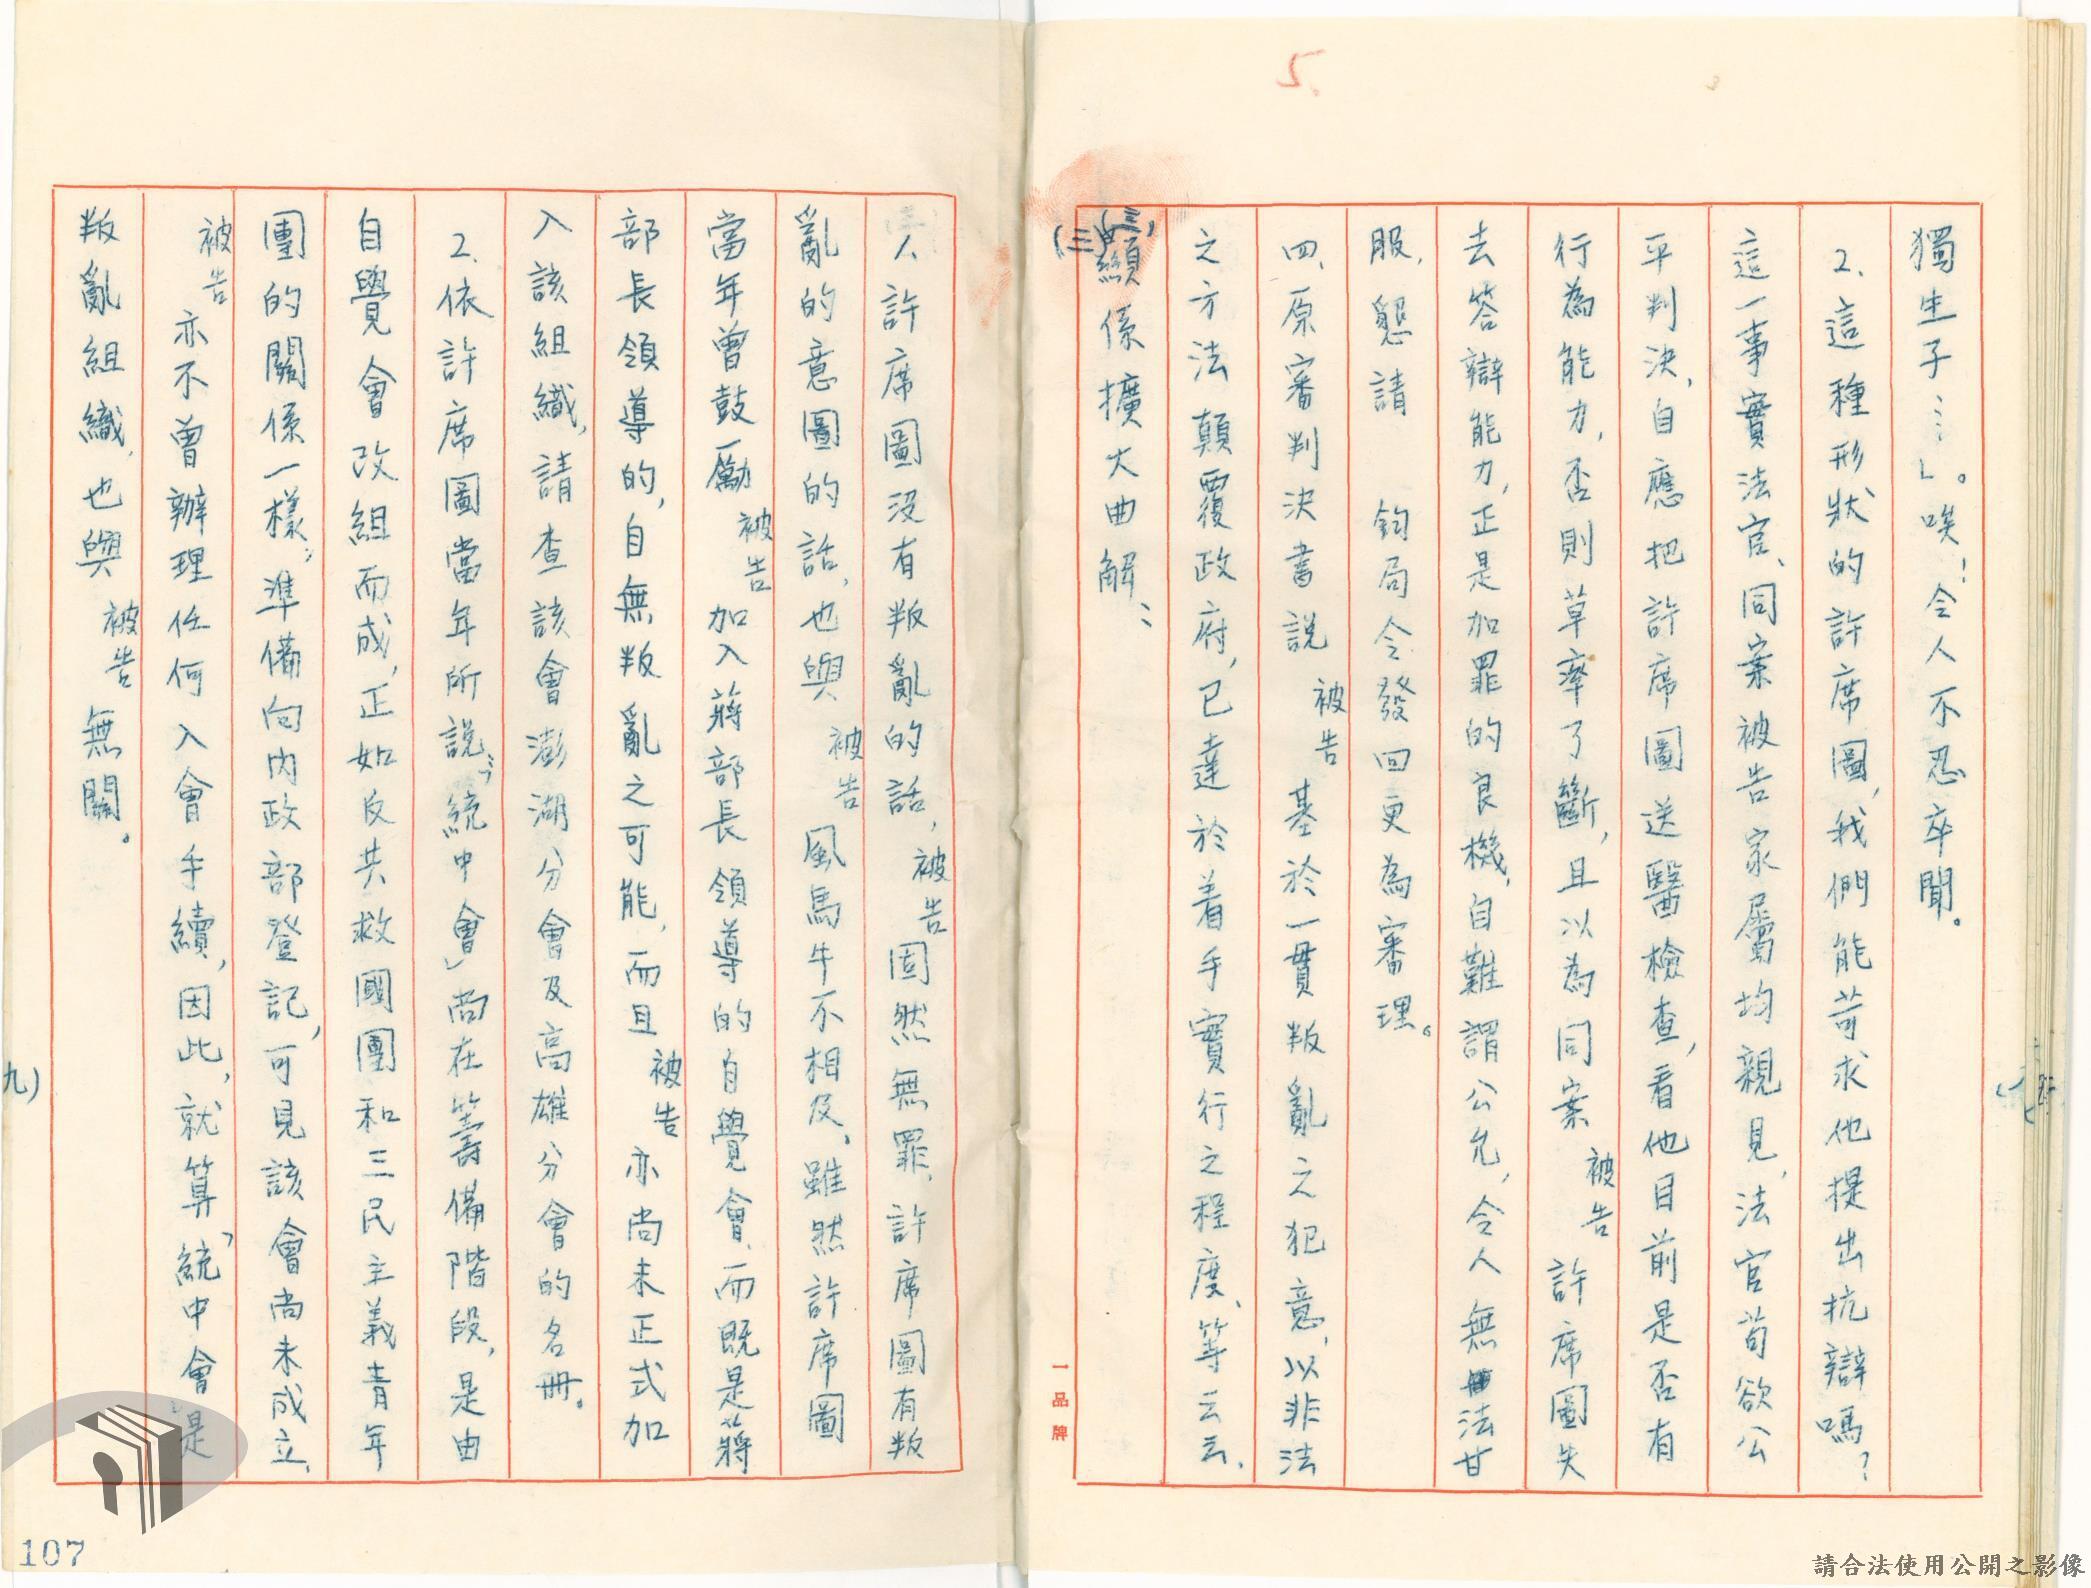 獨生子……」。唉!令人不忍卒聞。
2.這種形狀的許席圖,我們能苛求他提出抗辯嗎?
這一事實法官、同案被告家屬均親見,法官苟欲公
平判決,自應把許席圖送醫檢查,看他目前是否有
行為能力,否則草率了斷,且以為同案被告許席圖失
去答辯能力,正是加罪的良機,自難謂公允,令人無法甘
服,懇請 鈞局令發回更為審理。
四、原審判決書說被告基於一貫叛亂之犯意,以非法
之方法顛覆政府,已達於着手實行之程度、等云云、
(三)
(三)
係擴大曲解:
一品牌
1.許席圖沒有叛亂的話,被告固然無罪,許席圖有叛
亂的意圖的話,也與被告風馬牛不相及。雖然許席圖
當年曾鼓勵被告加入蔣部長領導的自覺會、而既是蔣
部長領導的,自無叛亂之可能,而且被告亦尚未正式加
入該組織,請查該會澎湖分會及高雄分會的名冊。
2.依許席圖當年所說:「統中會」尚在籌備階段,是由
自覺會改組而成,正如反共救國團和三民主義青年
團的關係一樣;準備向內政部登記,可見該會尚未成立、
被告亦不曾辦理任何入會手續,因此,就算「統中會」是
叛亂組織,也與被告無關。
九)
107
請合法使用公開之影像